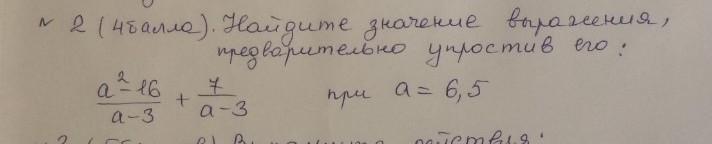 № 2 (4балла). Найдите значение выражения,
предварительно упростив его:
a²-16/a-3 + 7/a-3 при a = 6,5